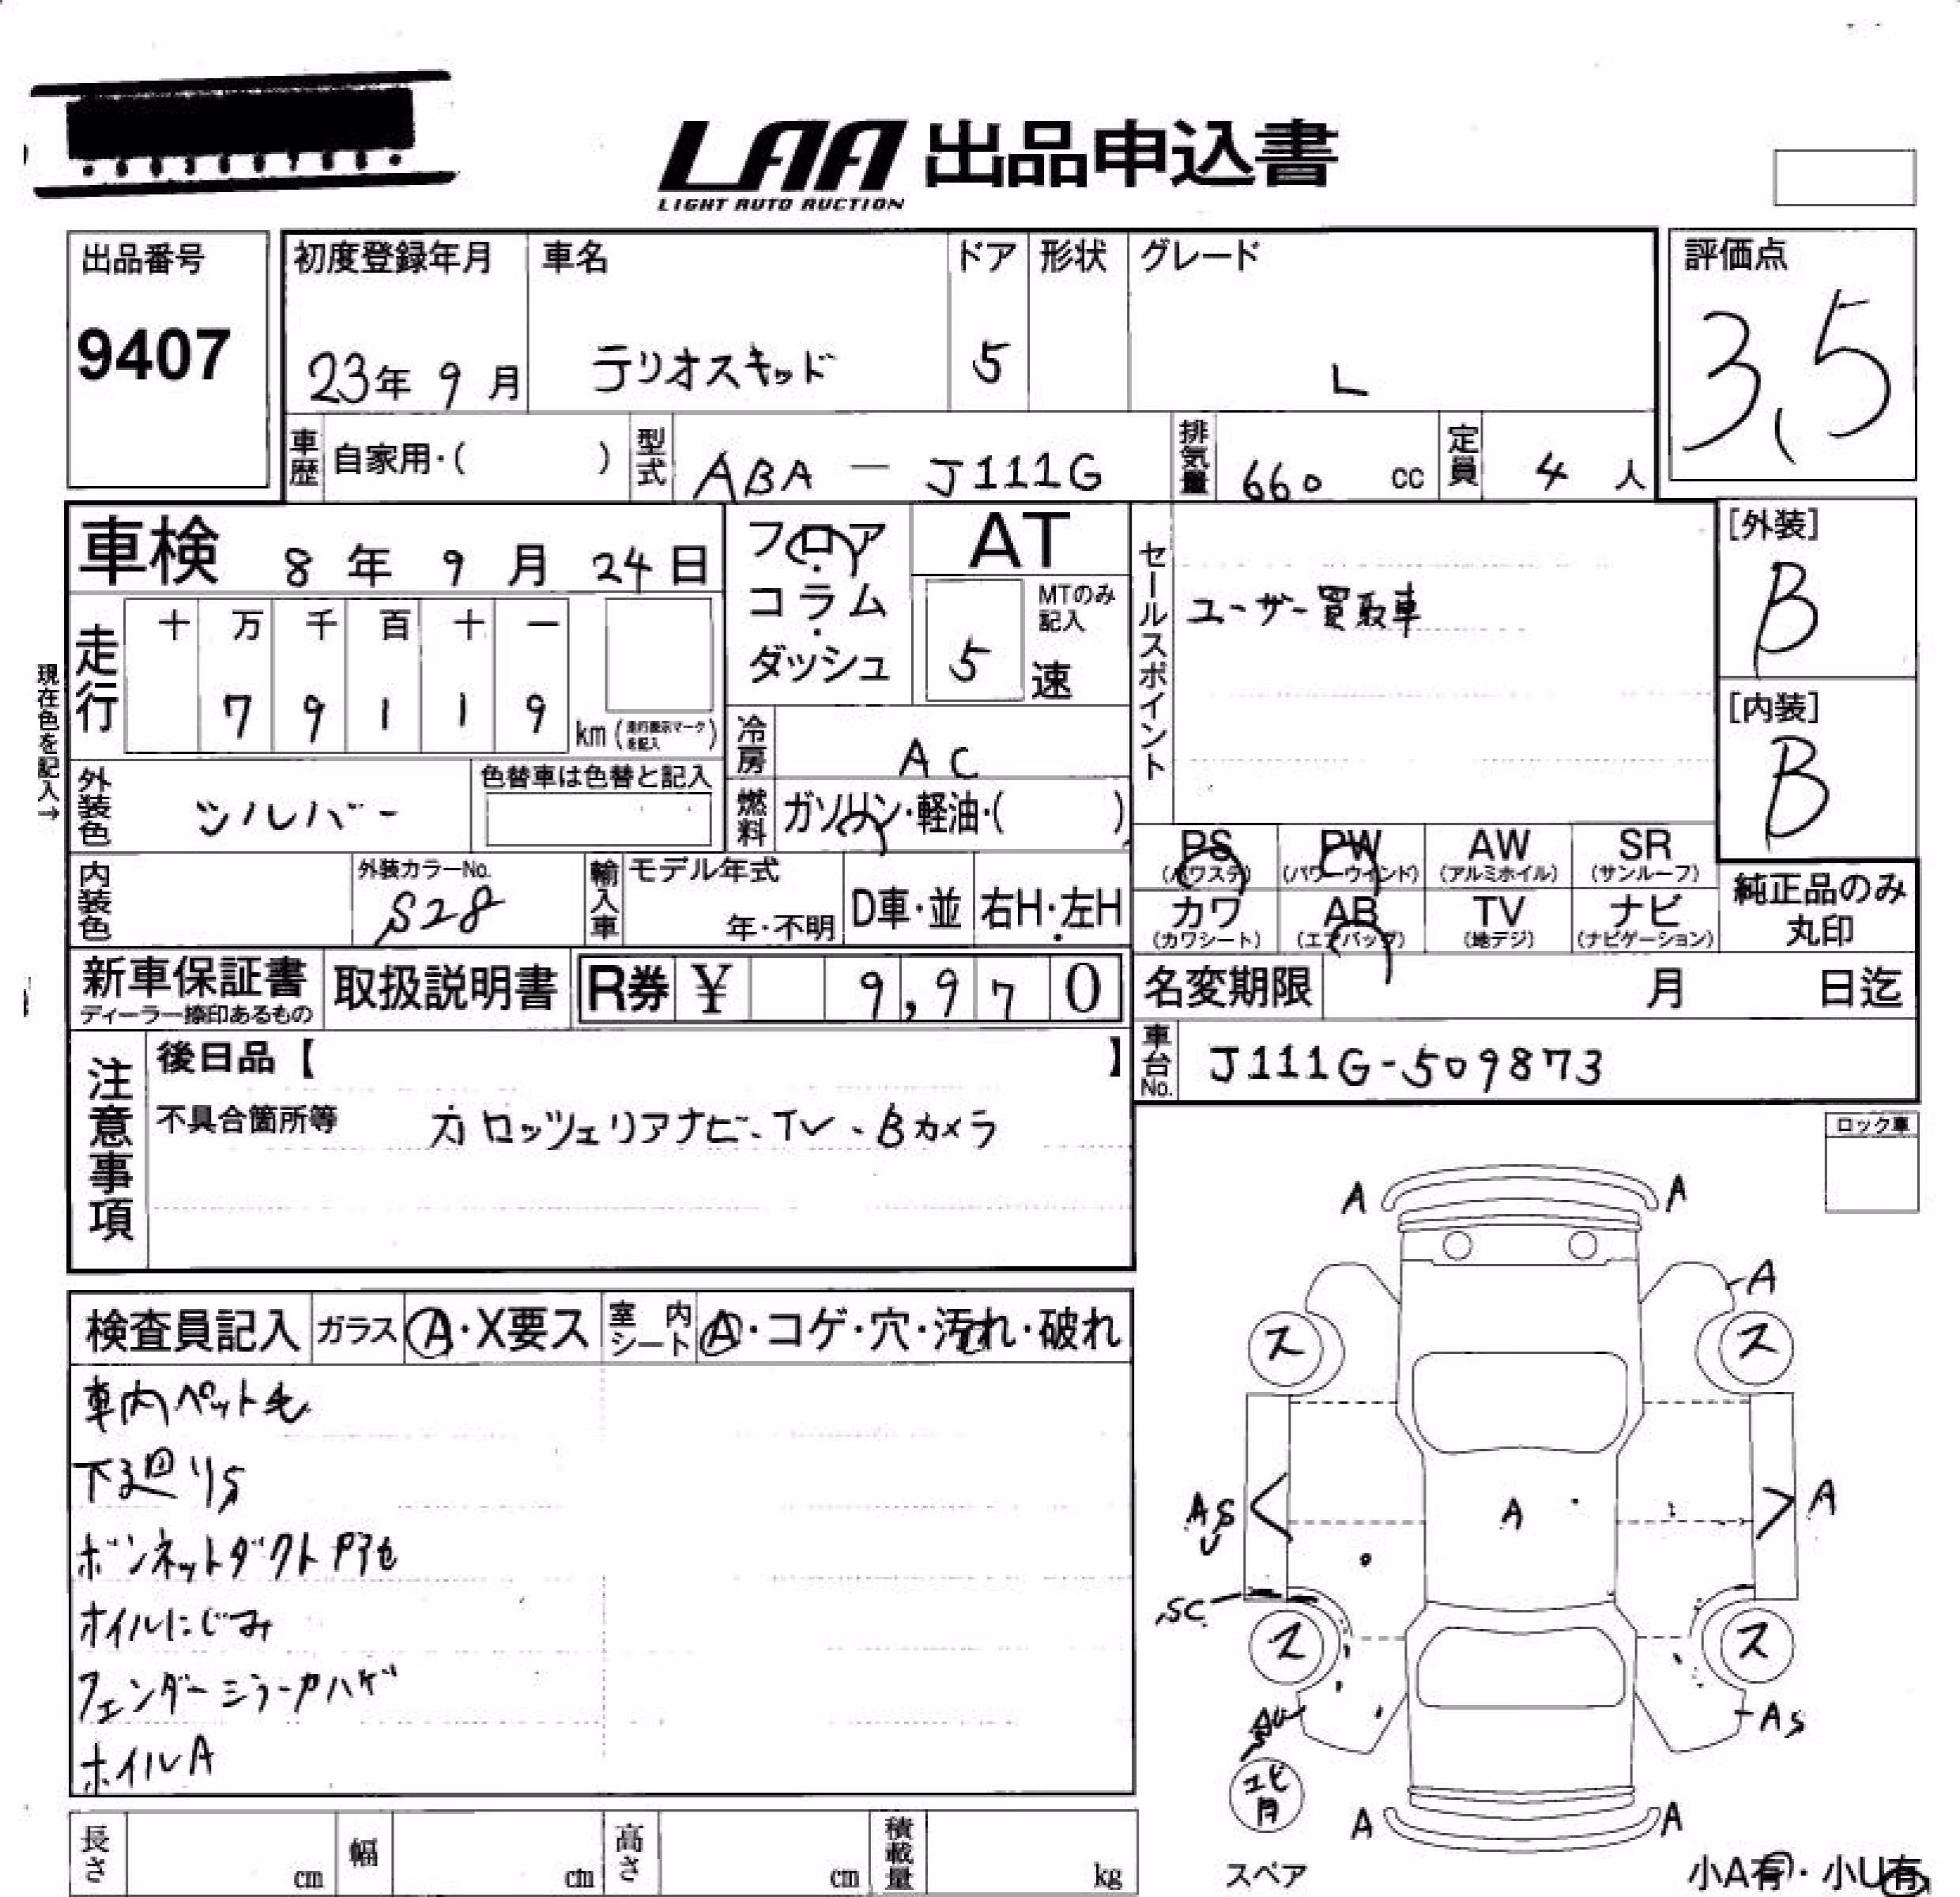 LAA 出品申込書
LIGHT AUTO AUCTION
出品番号
9407
初度登録年月
23年 9月
車名
テリオスキッド
ドア
5
形状
グレード
L
評価点
3.5
車歴 自家用・( )
型式 ABA - J111G
排気量 660 cc
定員 4 人
車検 8年 9月 24日
フロア・コラム・ダッシュ
AT
MTのみ記入
5 速
セールスポイント
ユーザー買取車
[外装]
B
[内装]
B
現在色を記入→
走行
十 万 千 百 十 一
7 9 1 1 9 km (走行表示マークを記入)
冷房 AC
燃料 ガソリン・軽油・( )
外装色 シルバー
色替車は色替と記入
内装色
外装カラーNo.
S28
輸入車 モデル年式
年・不明
D車・並
右H・左H
PS (パワステ)
PW (パワーウインド)
AW (アルミホイル)
SR (サンルーフ)
カワ (カワシート)
AB (エアバッグ)
TV (地デジ)
ナビ (ナビゲーション)
純正品のみ丸印
新車保証書
ディーラー捺印あるもの
取扱説明書
R券 ¥ 9,970
名変期限 月 日迄
車台No. J111G-509873
注意事項
後日品【 】
不具合箇所等 カロッツェリアナビ・TV・Bカメラ
ロック車
検査員記入
ガラス A・X要ス
室内シート A・コゲ・穴・汚れ・破れ
車内ペット毛
下廻りS
ボンネットダクト
オイルにじみ
フェンダーミラーカハゲ
ホイルA
A A
A
ス ス
AS
U
A
A
SC
ス ス
AS
A A
スペア
小A有・小U有
長さ cm
幅 cm
高さ cm
積載量 kg